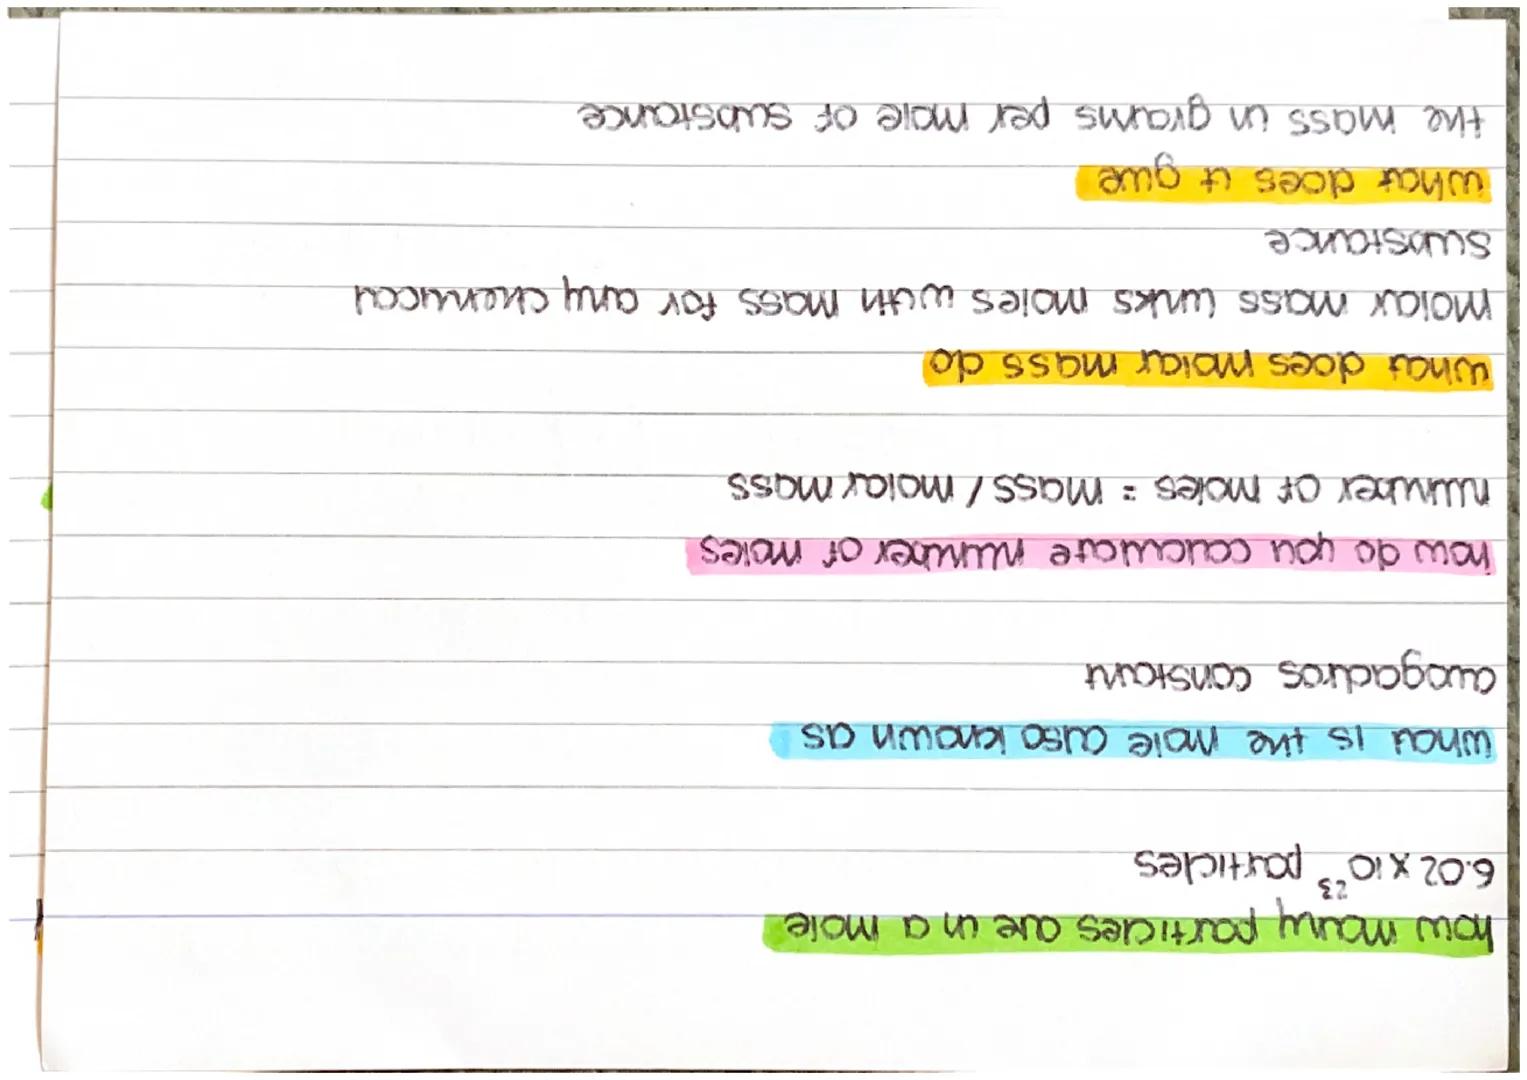 how many particles are in a mole
6.02 x 10²³ particles
what is the mole also known as
avogadros constant
how do you calculate number of moles
number of moles = mass / molar mass
what does molar mass do
molar mass links moles with mass for any chemical
substance
what does it give
the mass in grams per mole of substance